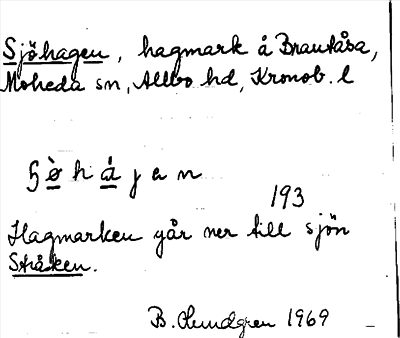 Sjöhagen, hagmark å Brantåsa,
Moheda sn, Allbo hd, Kronob. l
§ ø̀ h á j a n
193
Hagmarken går ner till sjön
Stråken.
B. Lundgren 1969